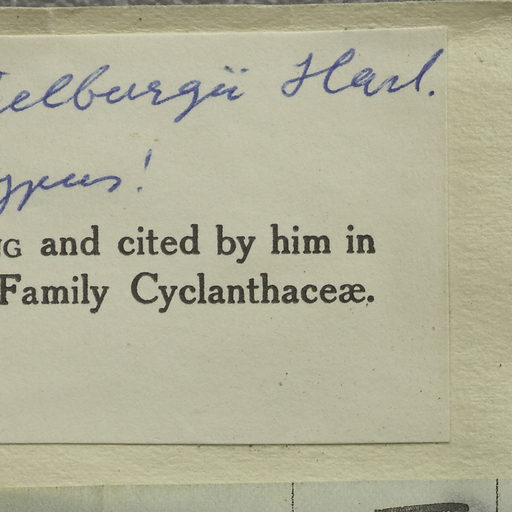 ielburgii Harl.
ypus!
NG and cited by him in
Family Cyclanthaceæ.